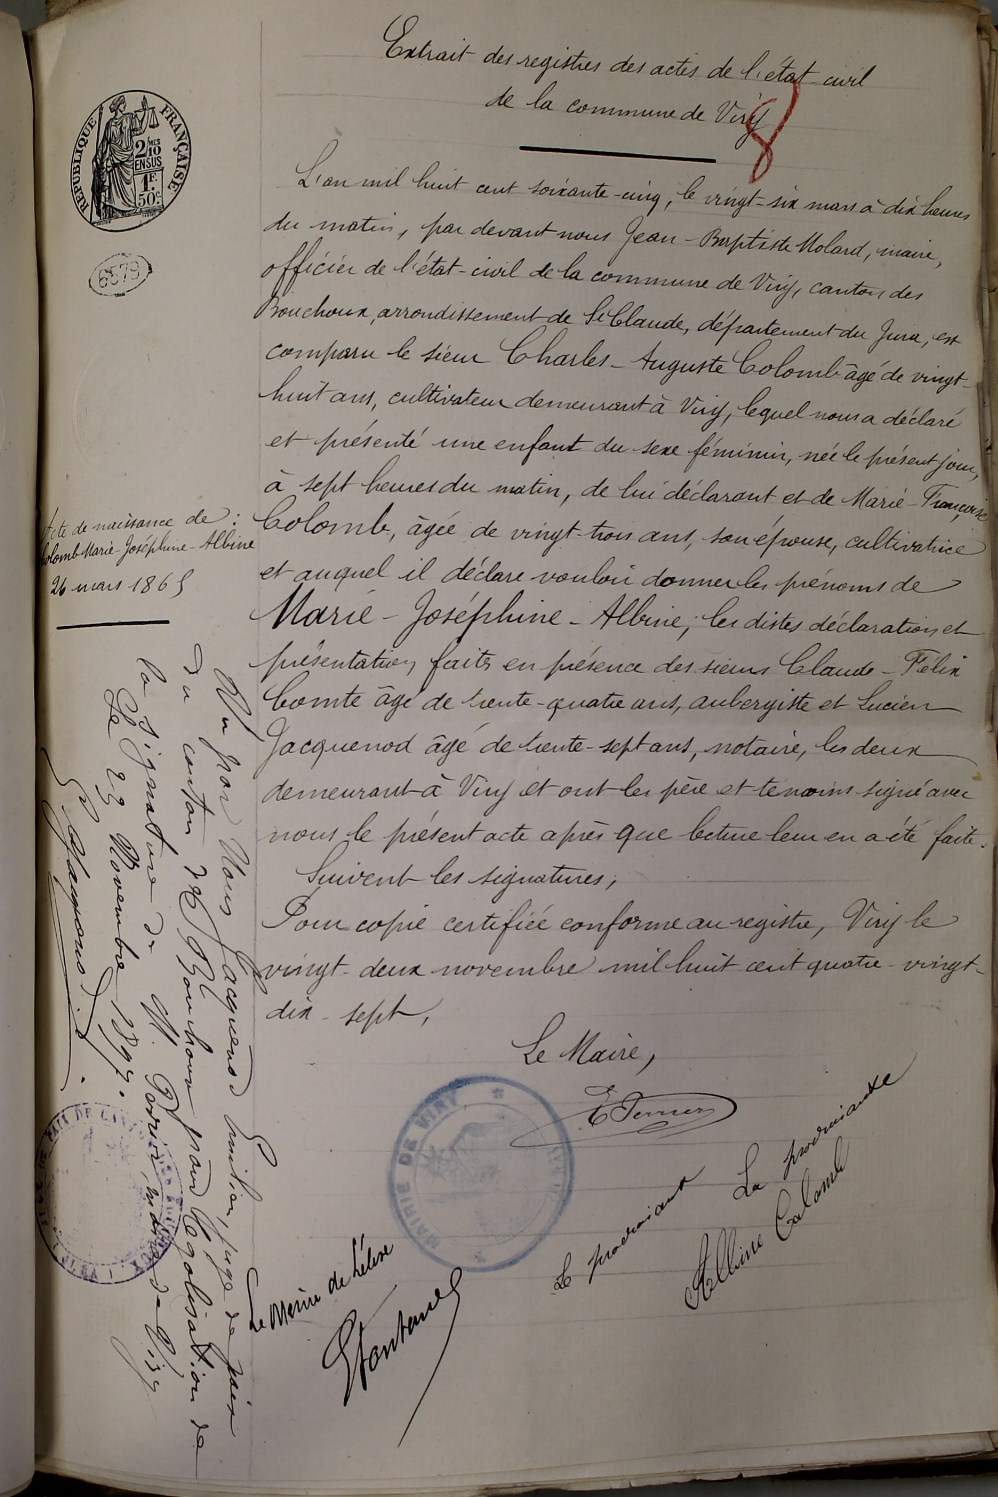 Extrait des registres des actes de l'état-civil
de la commune de Viry
8
RÉPUBLIQUE FRANÇAISE
2/10
EN SUS
1F.
50c.
6579
L'an mil huit cent soixante-cinq, le vingt-six mars à dix heures
du matin, par devant nous Jean-Baptiste Molard, maire,
officier de l'état-civil de la commune de Viry, canton des
Bouchoux, arrondissement de St Claude, département du Jura, est
comparu le sieur Charles-Auguste Colomb âgé de vingt-
huit ans, cultivateur demeurant à Viry, lequel nous a déclaré
et présenté une enfant du sexe féminin, née le présent jour,
à sept heures du matin, de lui déclarant et de Marie-Françoise
Colomb, âgée de vingt-trois ans, son épouse, cultivatrice
et auquel il déclare vouloir donner les prénoms de
Marie-Joséphine-Albine; les distes déclaration et
présentation, faites en présence des sieurs Claude-Félix
Comte âgé de trente-quatre ans, aubergiste et Lucien
Jacquenod âgé de trente-sept ans, notaire, les deux
demeurant à Viry et ont les père et témoins signé avec
nous le présent acte après que lecture leur en a été faite.
Suivent les signatures,
Pour copie certifiée conforme au registre, Viry le
vingt-deux novembre mil huit cent quatre-vingt-
dix-sept,
Le Maire,
E Perrier
MAIRIE DE VIRY
Acte de naissance de :
Colomb Marie-Joséphine-Albine
26 mars 1865
Vu par Nous Jacquenod Emilien, juge de paix
du canton des Bouchoux pour légalisation de
la signature de M. Perrier maire de Viry
Le 23 Novembre 1897.
E. Jacquenod
Le Maire de l'Étoile
Fontanel
Le prochaiant
La prochaiante
Albine Colomb